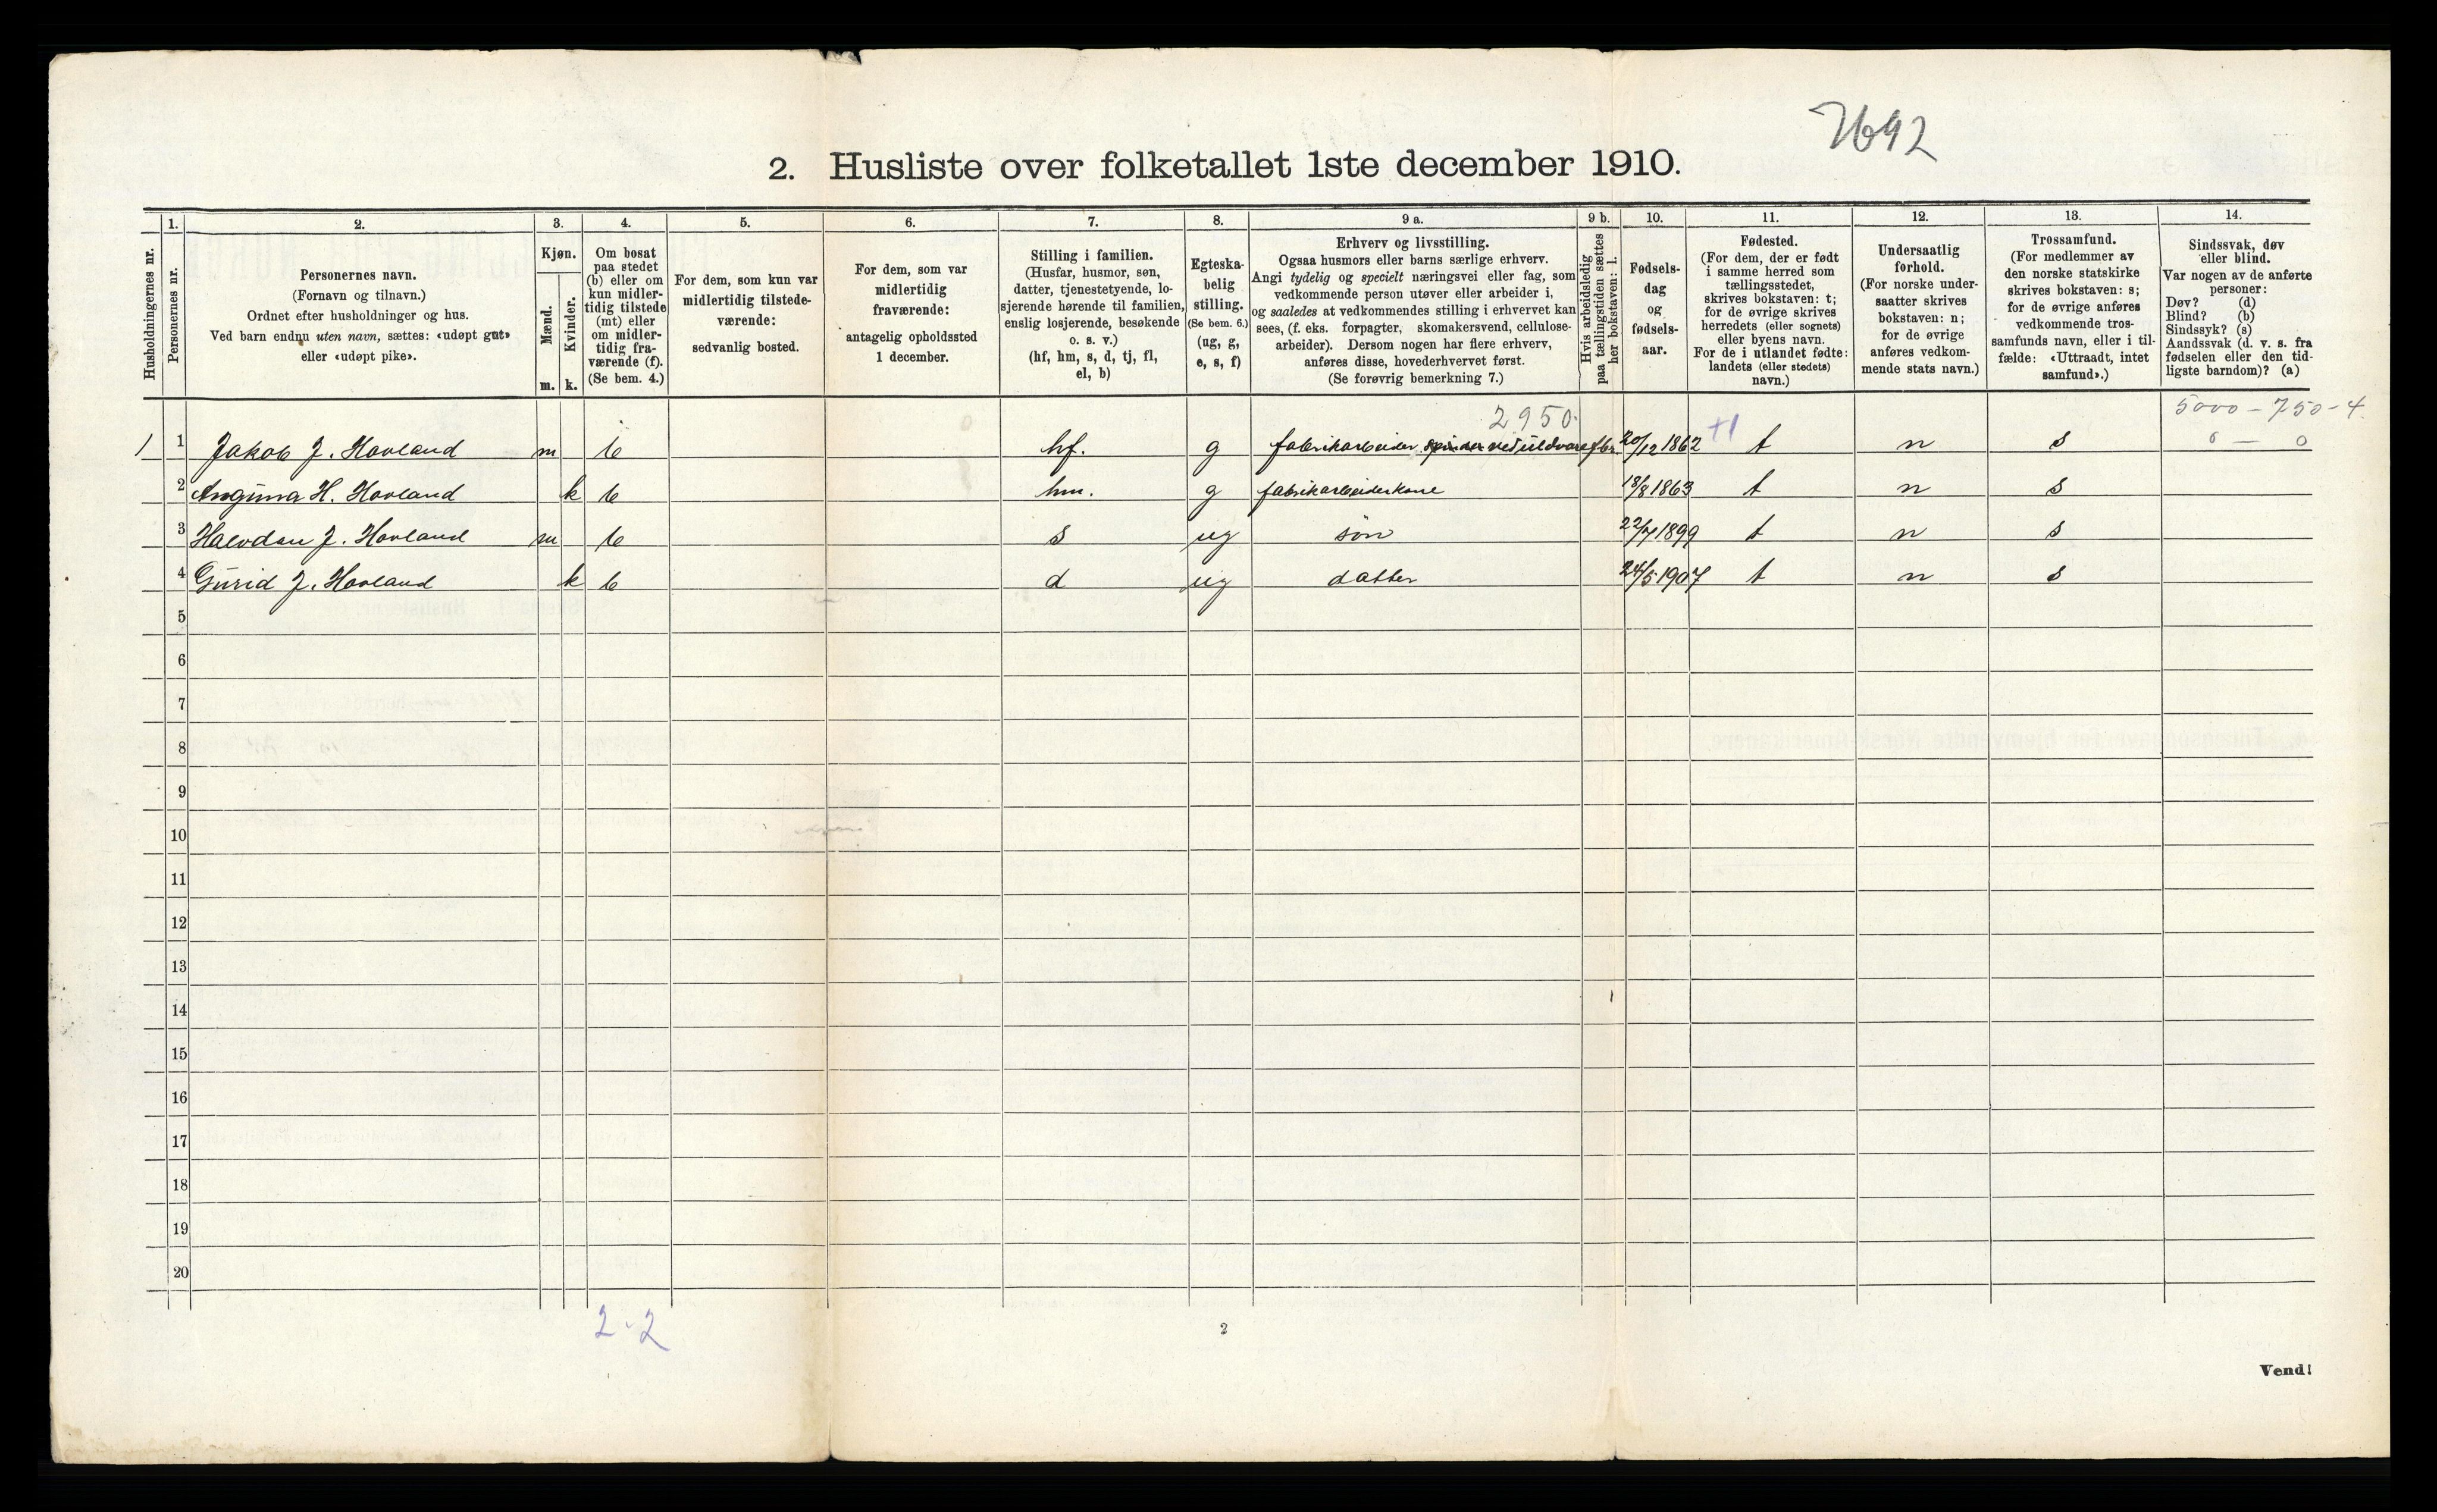 7692
2. Husliste over folketallet 1ste december 1910.
Husholdningernes nr.
1. Personernes nr.
2. Personernes navn.
(Fornavn og tilnavn.)
Ordnet efter husholdninger og hus.
Ved barn endnu uten navn, sættes: «udøpt gut»
eller «udøpt pike».
3. Kjøn.
Mænd. m.
Kvinder. k.
4. Om bosat
paa stedet
(b) eller om
kun midler-
tidig tilstede
(mt) eller
om midler-
tidig fra-
værende (f).
(Se bem. 4.)
5. For dem, som kun var
midlertidig tilstede-
værende:
sedvanlig bosted.
6. For dem, som var
midlertidig
fraværende:
antagelig opholdssted
1 december.
7. Stilling i familien.
(Husfar, husmor, søn,
datter, tjenestetyende, lo-
sjerende hørende til familien,
enslig losjerende, besøkende
o. s. v.)
(hf, hm, s, d, tj, fl,
el, b)
8. Egteska-
belig
stilling.
(Se bem. 6.)
(ug, g,
e, s, f)
9 a. Erhverv og livsstilling.
Ogsaa husmors eller barns særlige erhverv.
Angi tydelig og specielt næringsvei eller fag, som
vedkommende person utøver eller arbeider i,
og saaledes at vedkommendes stilling i erhvervet kan
sees, (f. eks. forpagter, skomakersvend, cellulose-
arbeider). Dersom nogen har flere erhverv,
anføres disse, hovederhvervet først.
(Se forøvrig bemerkning 7.)
9 b. Hvis arbeidsledig
paa tællingstiden sættes
her bokstaven: l.
10. Fødsels-
dag
og
fødsels-
aar.
11. Fødested.
(For dem, der er født
i samme herred som
tællingsstedet,
skrives bokstaven: t;
for de øvrige skrives
herredets (eller sognets)
eller byens navn.
For de i utlandet fødte:
landets (eller stedets)
navn.)
12. Undersaatlig
forhold.
(For norske under-
saatter skrives
bokstaven: n;
for de øvrige
anføres vedkom-
mende stats navn.)
13. Trossamfund.
(For medlemmer av
den norske statskirke
skrives bokstaven: s;
for de øvrige anføres
vedkommende tros-
samfunds navn, eller i til-
fælde: «Uttraadt, intet
samfund».)
14. Sindssvak, døv
eller blind.
Var nogen av de anførte
personer:
Døv? (d)
Blind? (b)
Sindssyk? (s)
Aandssvak (d. v. s. fra
fødselen eller den tid-
ligste barndom)? (a)
2950. 5000 - 750 - 4
1 1 Jakob J. Hovland m b hf. g fabrikarbeider spinder ved uldvarefbr. 20/12 1862 t n s 0 — 0
2 Angūna H. Hovland k b hm. g fabrikarbeiderkone 13/8 1863 t n s
3 Halvdan J. Hovland m b s ug søn 22/7 1899 t n s
4 Gūrid J. Hovland k b d ug datter 24/5 1907 t n s
5
6
7
8
9
10
11
12
13
14
15
16
17
18
19
20
2-2
2
Vend!